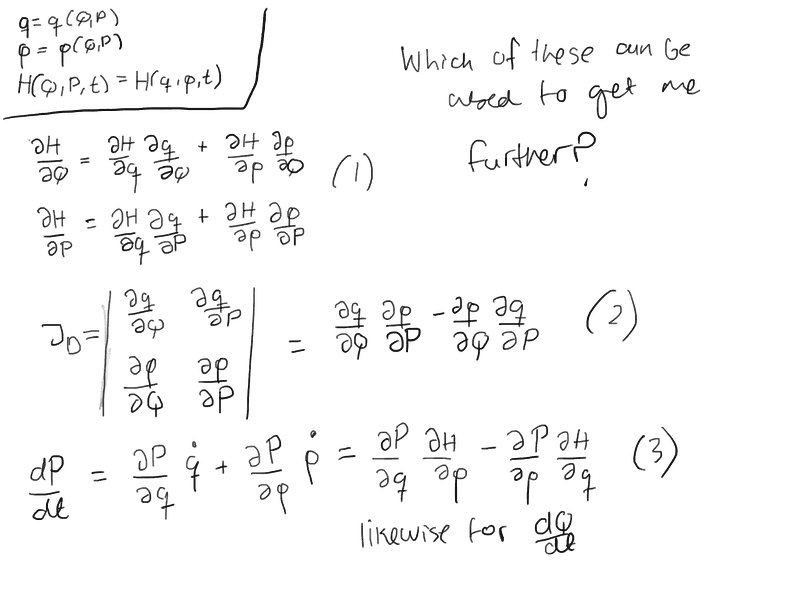 q = q(Q,P)
p = p(Q,P)
H(Q,P,t) = H(q,p,t)
Which of these can be
used to get me
further?
∂H/∂Q = ∂H/∂q ∂q/∂Q + ∂H/∂p ∂p/∂Q (1)
∂H/∂P = ∂H/∂q ∂q/∂P + ∂H/∂p ∂p/∂P
J_D = | ∂q/∂Q ∂q/∂P ; ∂p/∂Q ∂p/∂P | = ∂q/∂Q ∂p/∂P - ∂p/∂Q ∂q/∂P (2)
dP/dt = ∂P/∂q q̇ + ∂P/∂p ṗ = ∂P/∂q ∂H/∂p - ∂P/∂p ∂H/∂q (3)
likewise for dQ/dt